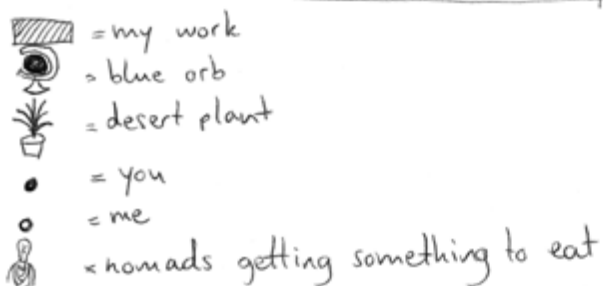 = my work
= blue orb
= desert plant
= you
= me
= nomads getting something to eat